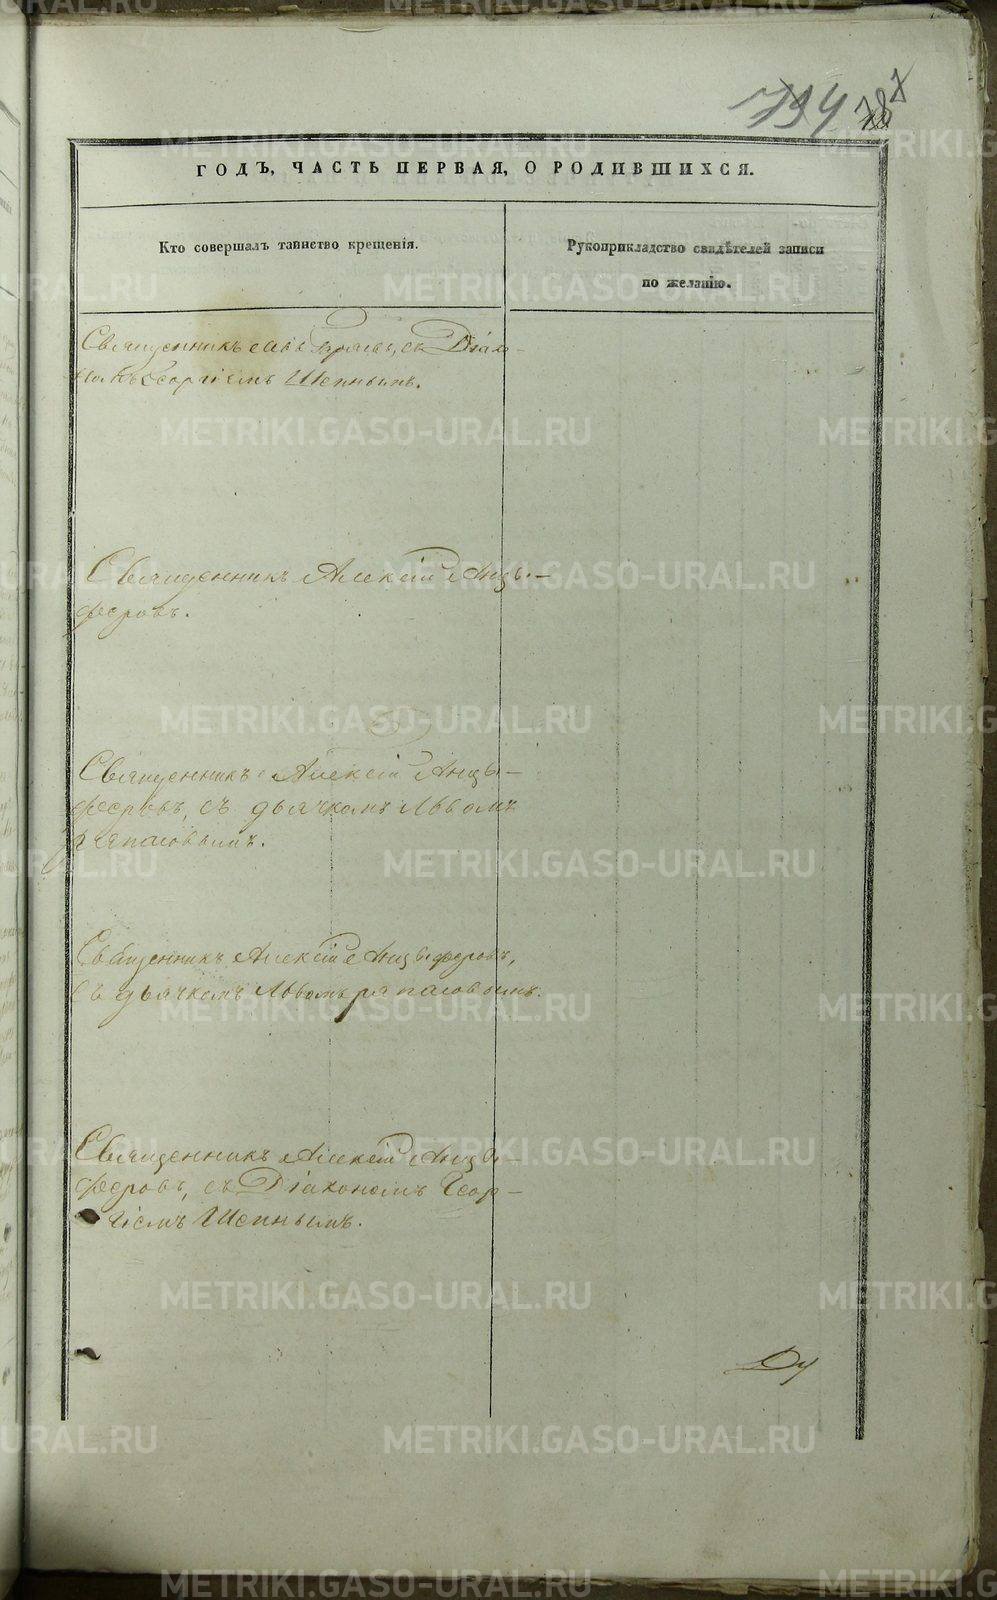 METRIKI.GASO-URAL.RU
794 787
ГОДЪ, ЧАСТЬ ПЕРВАЯ, О РОДИВШИХСЯ.
Кто совершалъ таинство крещенія.
Рукоприкладство свидѣтелей записи
по желанію.
Священникъ съ Діако-
номъ Георгіемъ Шепнымъ.
Священникъ Алексій Анцы-
феровъ.
Священникъ Алексій Анцы-
феровъ, съ дьячкомъ Львомъ
Священникъ Алексій Анцыферовъ,
съ дьячкомъ Львомъ
Священникъ Алексій Анцы-
феровъ, съ Діакономъ Геор-
гіемъ Шепнымъ.